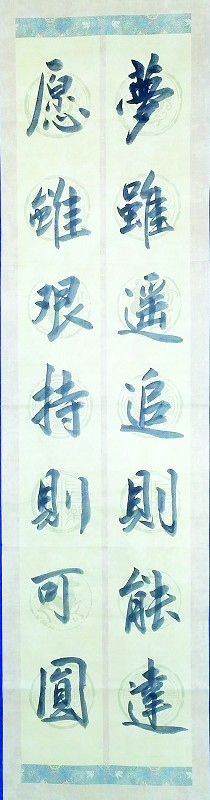 夢雖遥追則能達
愿雖艰持則可圓